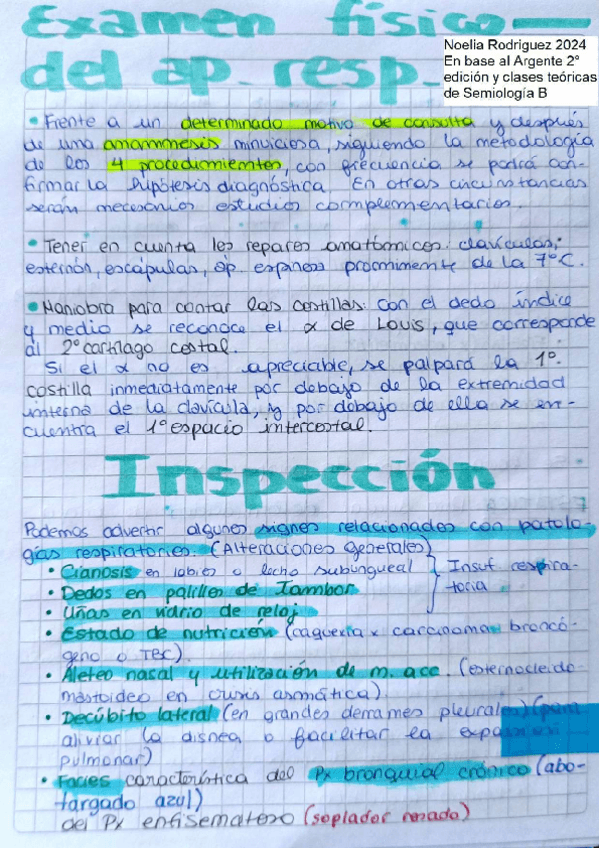 Examen físico
del ap. resp.
Noelia Rodriguez 2024
En base al Argente 2°
edición y clases teóricas
de Semiología B
• Frente a un determinado motivo de consulta y después
de una anamnesis minuciosa, siguiendo la metodología
de los 4 procedimientos, con frecuencia se podrá con-
firmar la hipótesis diagnóstica. En otras circunstancias
serán necesarios estudios complementarios.
• Tener en cuenta los reparos anatómicos: clavículas,
esternón, escápulas, ap. espinosa prominente de la 7° C.
• Maniobra para contar las costillas: con el dedo índice
y medio se reconoce el α de Louis, que corresponde
al 2° cartílago costal.
Si el α no es apreciable, se palpará la 1°
costilla inmediatamente por debajo de la extremidad
interna de la clavícula, y por debajo de ella se en-
cuentra el 1° espacio intercostal.
Inspección
Podemos advertir algunos signos relacionados con patolo-
gías respiratorias. (Alteraciones generales)
• Cianosis en labios o lecho subungueal } Insuf respira-
• Dedos en palillos de Tambor toria
• Uñas en vidrio de reloj
• Estado de nutrición (caquexia x carcinoma broncó-
geno o TBC).
• Aleteo nasal y utilización de m. acc. (esternocleido-
mastoideo en crisis asmática)
• Decúbito lateral (en grandes derrames pleurales) (para
aliviar la disnea o facilitar la expansión
pulmonar)
• Facies característica del Px bronquial crónico (abo-
targado azul)
del Px enfisematoso (soplador rosado)